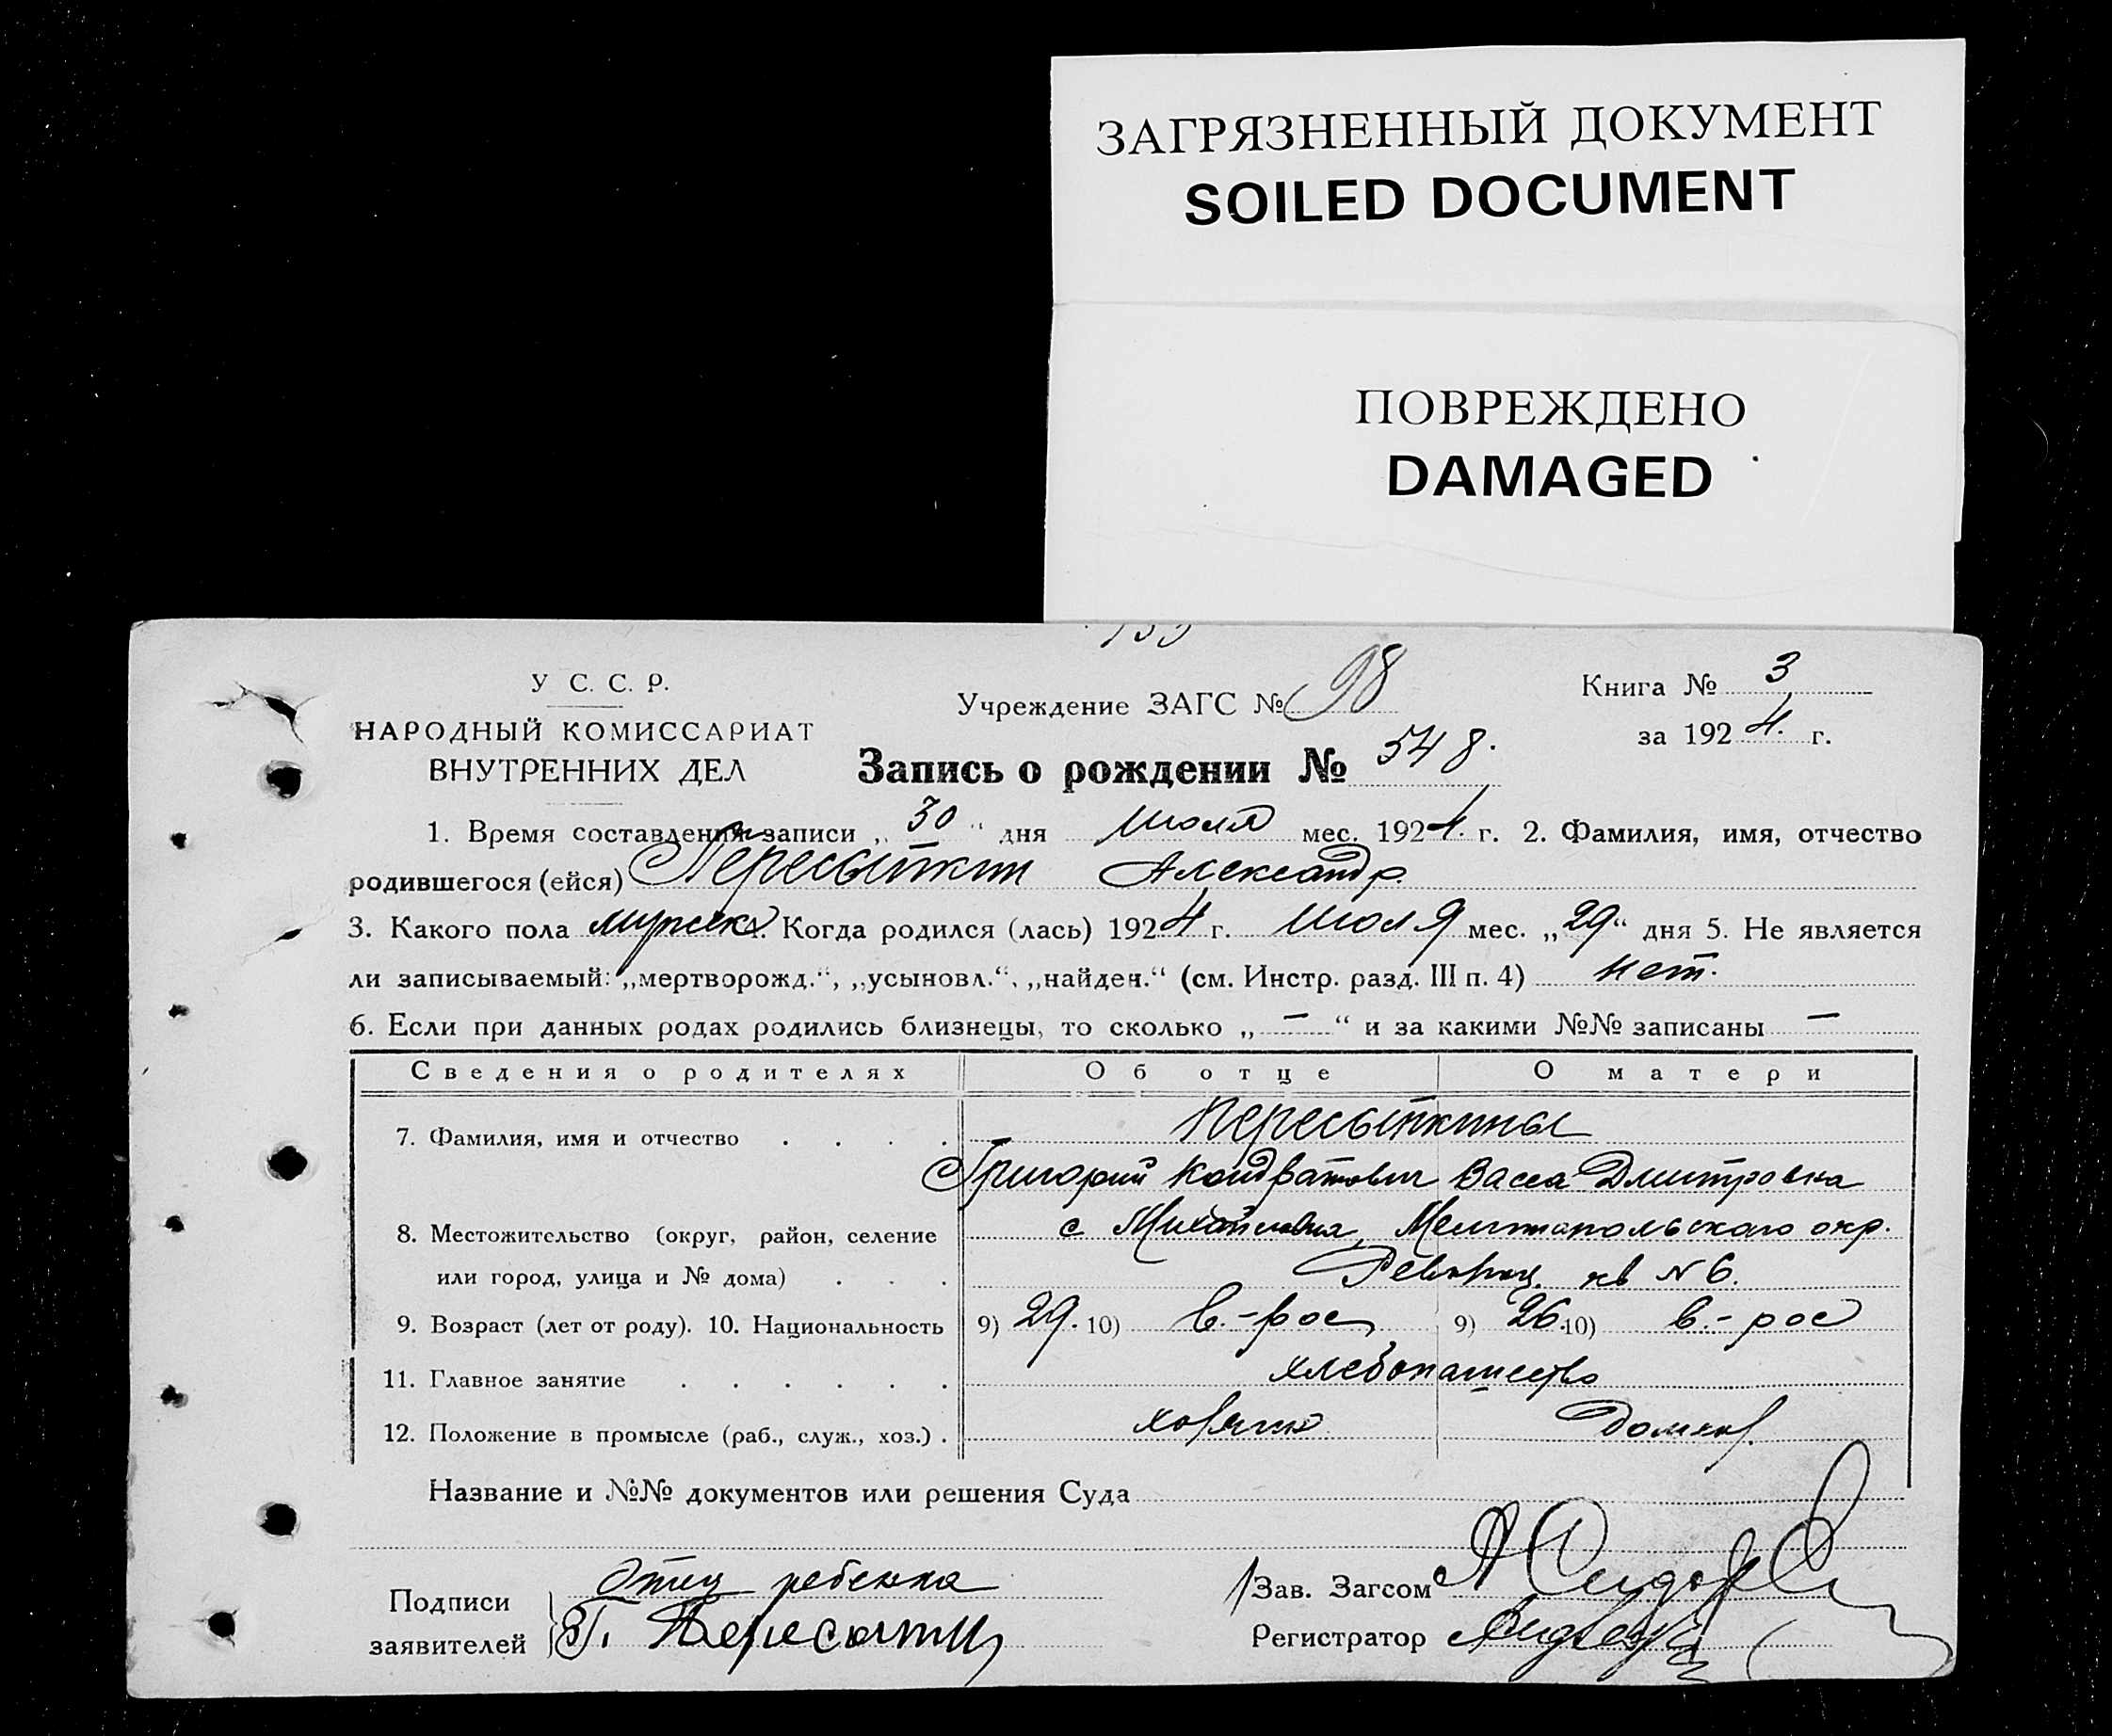 ЗАГРЯЗНЕННЫЙ ДОКУМЕНТ
SOILED DOCUMENT
ПОВРЕЖДЕНО
DAMAGED
У С. С. Р.
НАРОДНЫЙ КОМИССАРИАТ
ВНУТРЕННИХ ДЕЛ
Учреждение ЗАГС № 98
Книга № 3
за 1924. г.
Запись о рождении № 548.
1. Время составления записи „ 30 “ дня июля мес. 1924. г. 2. Фамилия, имя, отчество
родившегося (ейся) Пересыпкин Александр.
3. Какого пола мужск. Когда родился (лась) 1924 г. июля мес. „29“ дня 5. Не является
ли записываемый: „мертворожд.“, „усыновл.“, „найден.“ (см. Инстр. разд. III п. 4) нет.
6. Если при данных родах родились близнецы, то сколько „ — “ и за какими №№ записаны —
Сведения о родителях Об отце О матери
7. Фамилия, имя и отчество . . . . Пересыпкины
Григорий Кондратович Васса Дмитровна
8. Местожительство (округ, район, селение с Михайловка, Мелитопольского окр.
или город, улица и № дома) . . . кв № 6.
9. Возраст (лет от роду). 10. Национальность 9) 29. 10) в.-рос 9) 26. 10) в.-рос
11. Главное занятие . . . . . . хлебопашество
12. Положение в промысле (раб., служ., хоз.) . хозяин домхоз.
Название и №№ документов или решения Суда
Подписи заявителей
Отец ребенка
Г. Пересыпкин
Зав. Загсом
Регистратор